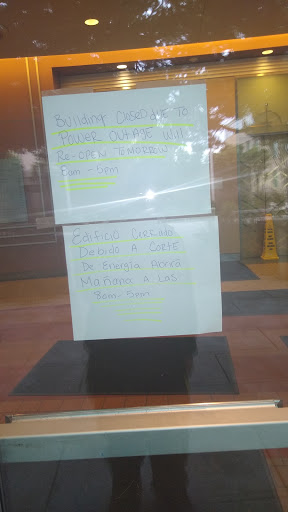 Building CLOSED DUE TO
POWER OUTAGE Will
RE-OPEN TOMORROW
8am - 5pm
EDIFICIO CERRADO
DEBIDO A CORTE
DE ENERGÍA ABRIRÁ
MAÑANA A LAS
8am - 5pm